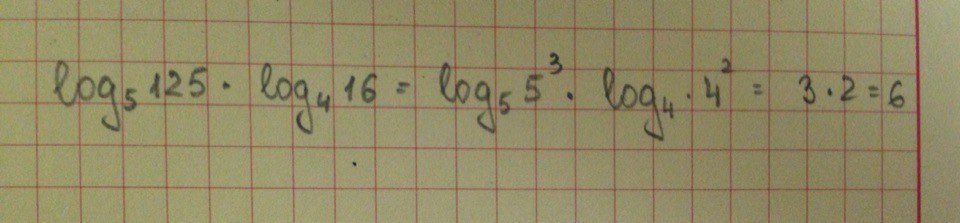 log₅ 125 · log₄ 16 = log₅ 5³ · log₄ · 4² = 3 · 2 = 6